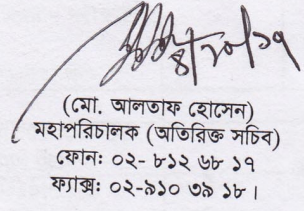 ৪/১০/১৭
(মো. আলতাফ হোসেন)
মহাপরিচালক (অতিরিক্ত সচিব)
ফোনঃ ০২- ৮১২ ৬৮ ১৭
ফ্যাক্সঃ ০২-৯১০ ৩৯ ১৮।